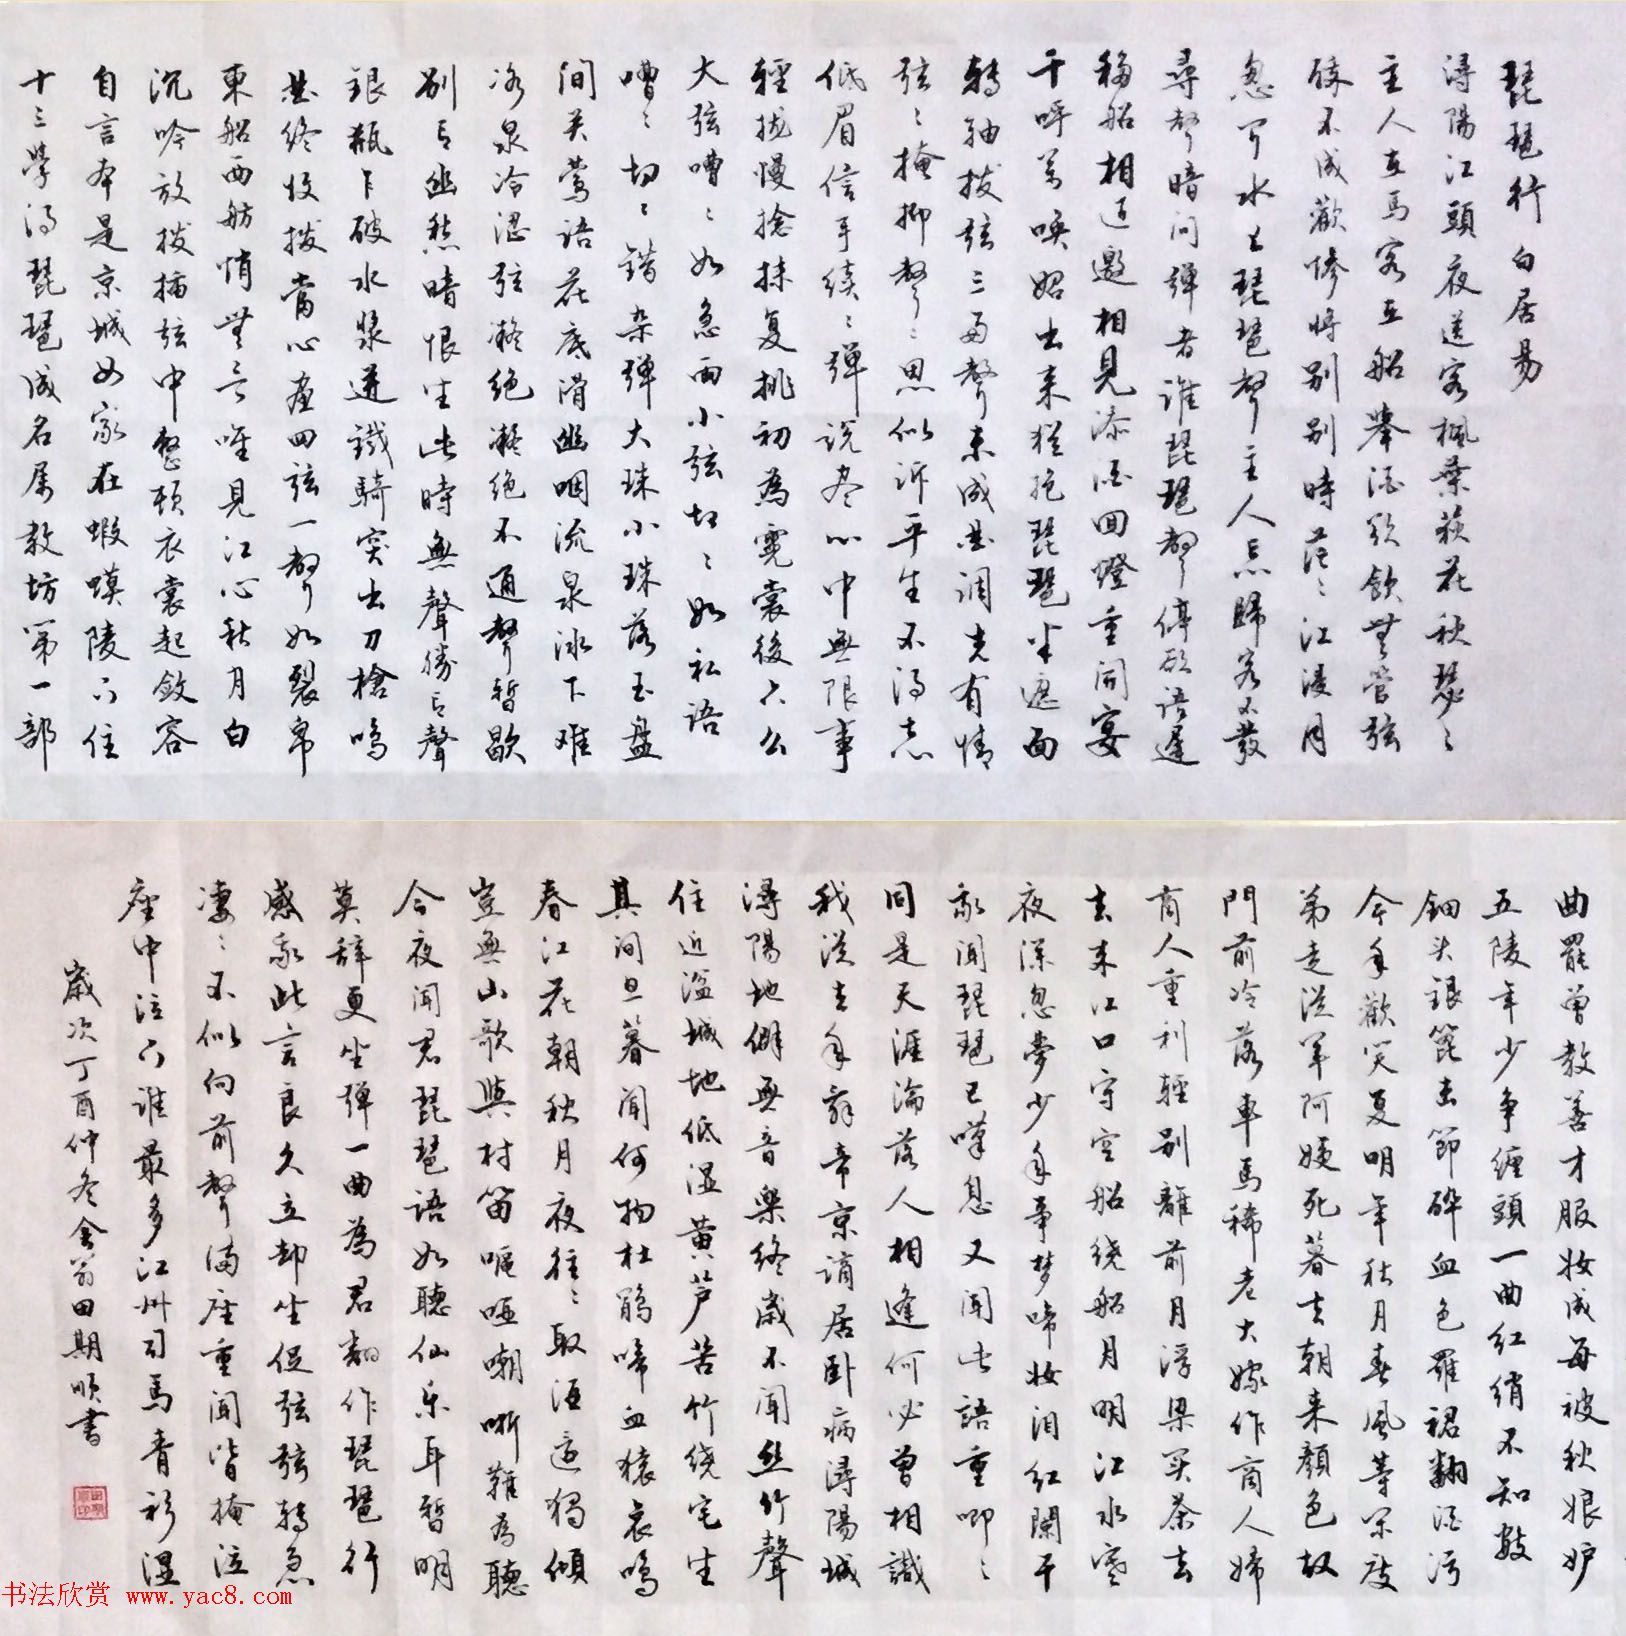 琵琶行 白居易
潯陽江頭夜送客楓葉荻花秋瑟〻
主人在馬客在船舉酒欲飲無管弦
醉不成歡慘將別別時茫〻江浸月
忽聞水上琵琶聲主人忘歸客不發
尋聲暗問彈者誰琵琶聲停欲語遲
移船相近邀相見添酒回燈重開宴
千呼萬喚始出来猶抱琵琶半遮面
轉軸撥弦三两聲未成曲調先有情
弦〻掩抑聲〻思似訴平生不得志
低眉信手續〻彈說盡心中無限事
輕攏慢捻抹复挑初為霓裳後六么
大弦嘈〻如急雨小弦切〻如私語
嘈〻切〻錯杂彈大珠小珠落玉盘
間关鶯語花底滑幽咽流泉冰下难
冰泉冷澀弦凝絕凝絕不通聲暫歇
別有幽愁暗恨生此時無聲勝有聲
銀瓶乍破水漿迸鐵騎突出刀槍鳴
曲終收撥當心畫四弦一聲如裂帛
東船西舫悄無言唯見江心秋月白
沉吟放撥插弦中整頓衣裳起斂容
自言本是京城女家在蝦蟆陵下住
十三學得琵琶成名属教坊第一部
曲罷曾教善才服妝成每被秋娘妒
五陵年少争缠頭一曲紅綃不知數
鈿头銀篦击節碎血色羅裙翻酒污
今年歡笑复明年秋月春風等閑度
弟走從軍阿姨死暮去朝来顏色故
門前冷落車馬稀老大嫁作商人婦
商人重利輕别離前月浮梁买茶去
去来江口守空船绕船月明江水寒
夜深忽夢少年事梦啼妝泪紅闌干
我聞琵琶已嘆息又聞此語重唧〻
同是天涯淪落人相逢何必曾相識
我從去年辭帝京謫居卧病潯陽城
潯陽地僻無音樂終歲不聞丝竹聲
住近湓城地低湿黄芦苦竹绕宅生
其间旦暮聞何物杜鵑啼血猿哀鳴
春江花朝秋月夜往〻取酒還獨傾
豈無山歌與村笛嘔啞嘲哳難為聽
今夜闻君琵琶語如聽仙乐耳暫明
莫辞更坐彈一曲為君翻作琵琶行
感我此言良久立却坐促弦弦轉急
淒〻不似向前聲滿座重闻皆掩泣
座中泣下谁最多江州司馬青衫濕
歲次丁酉仲冬會翁田期順書
书法欣赏 www.yac8.com